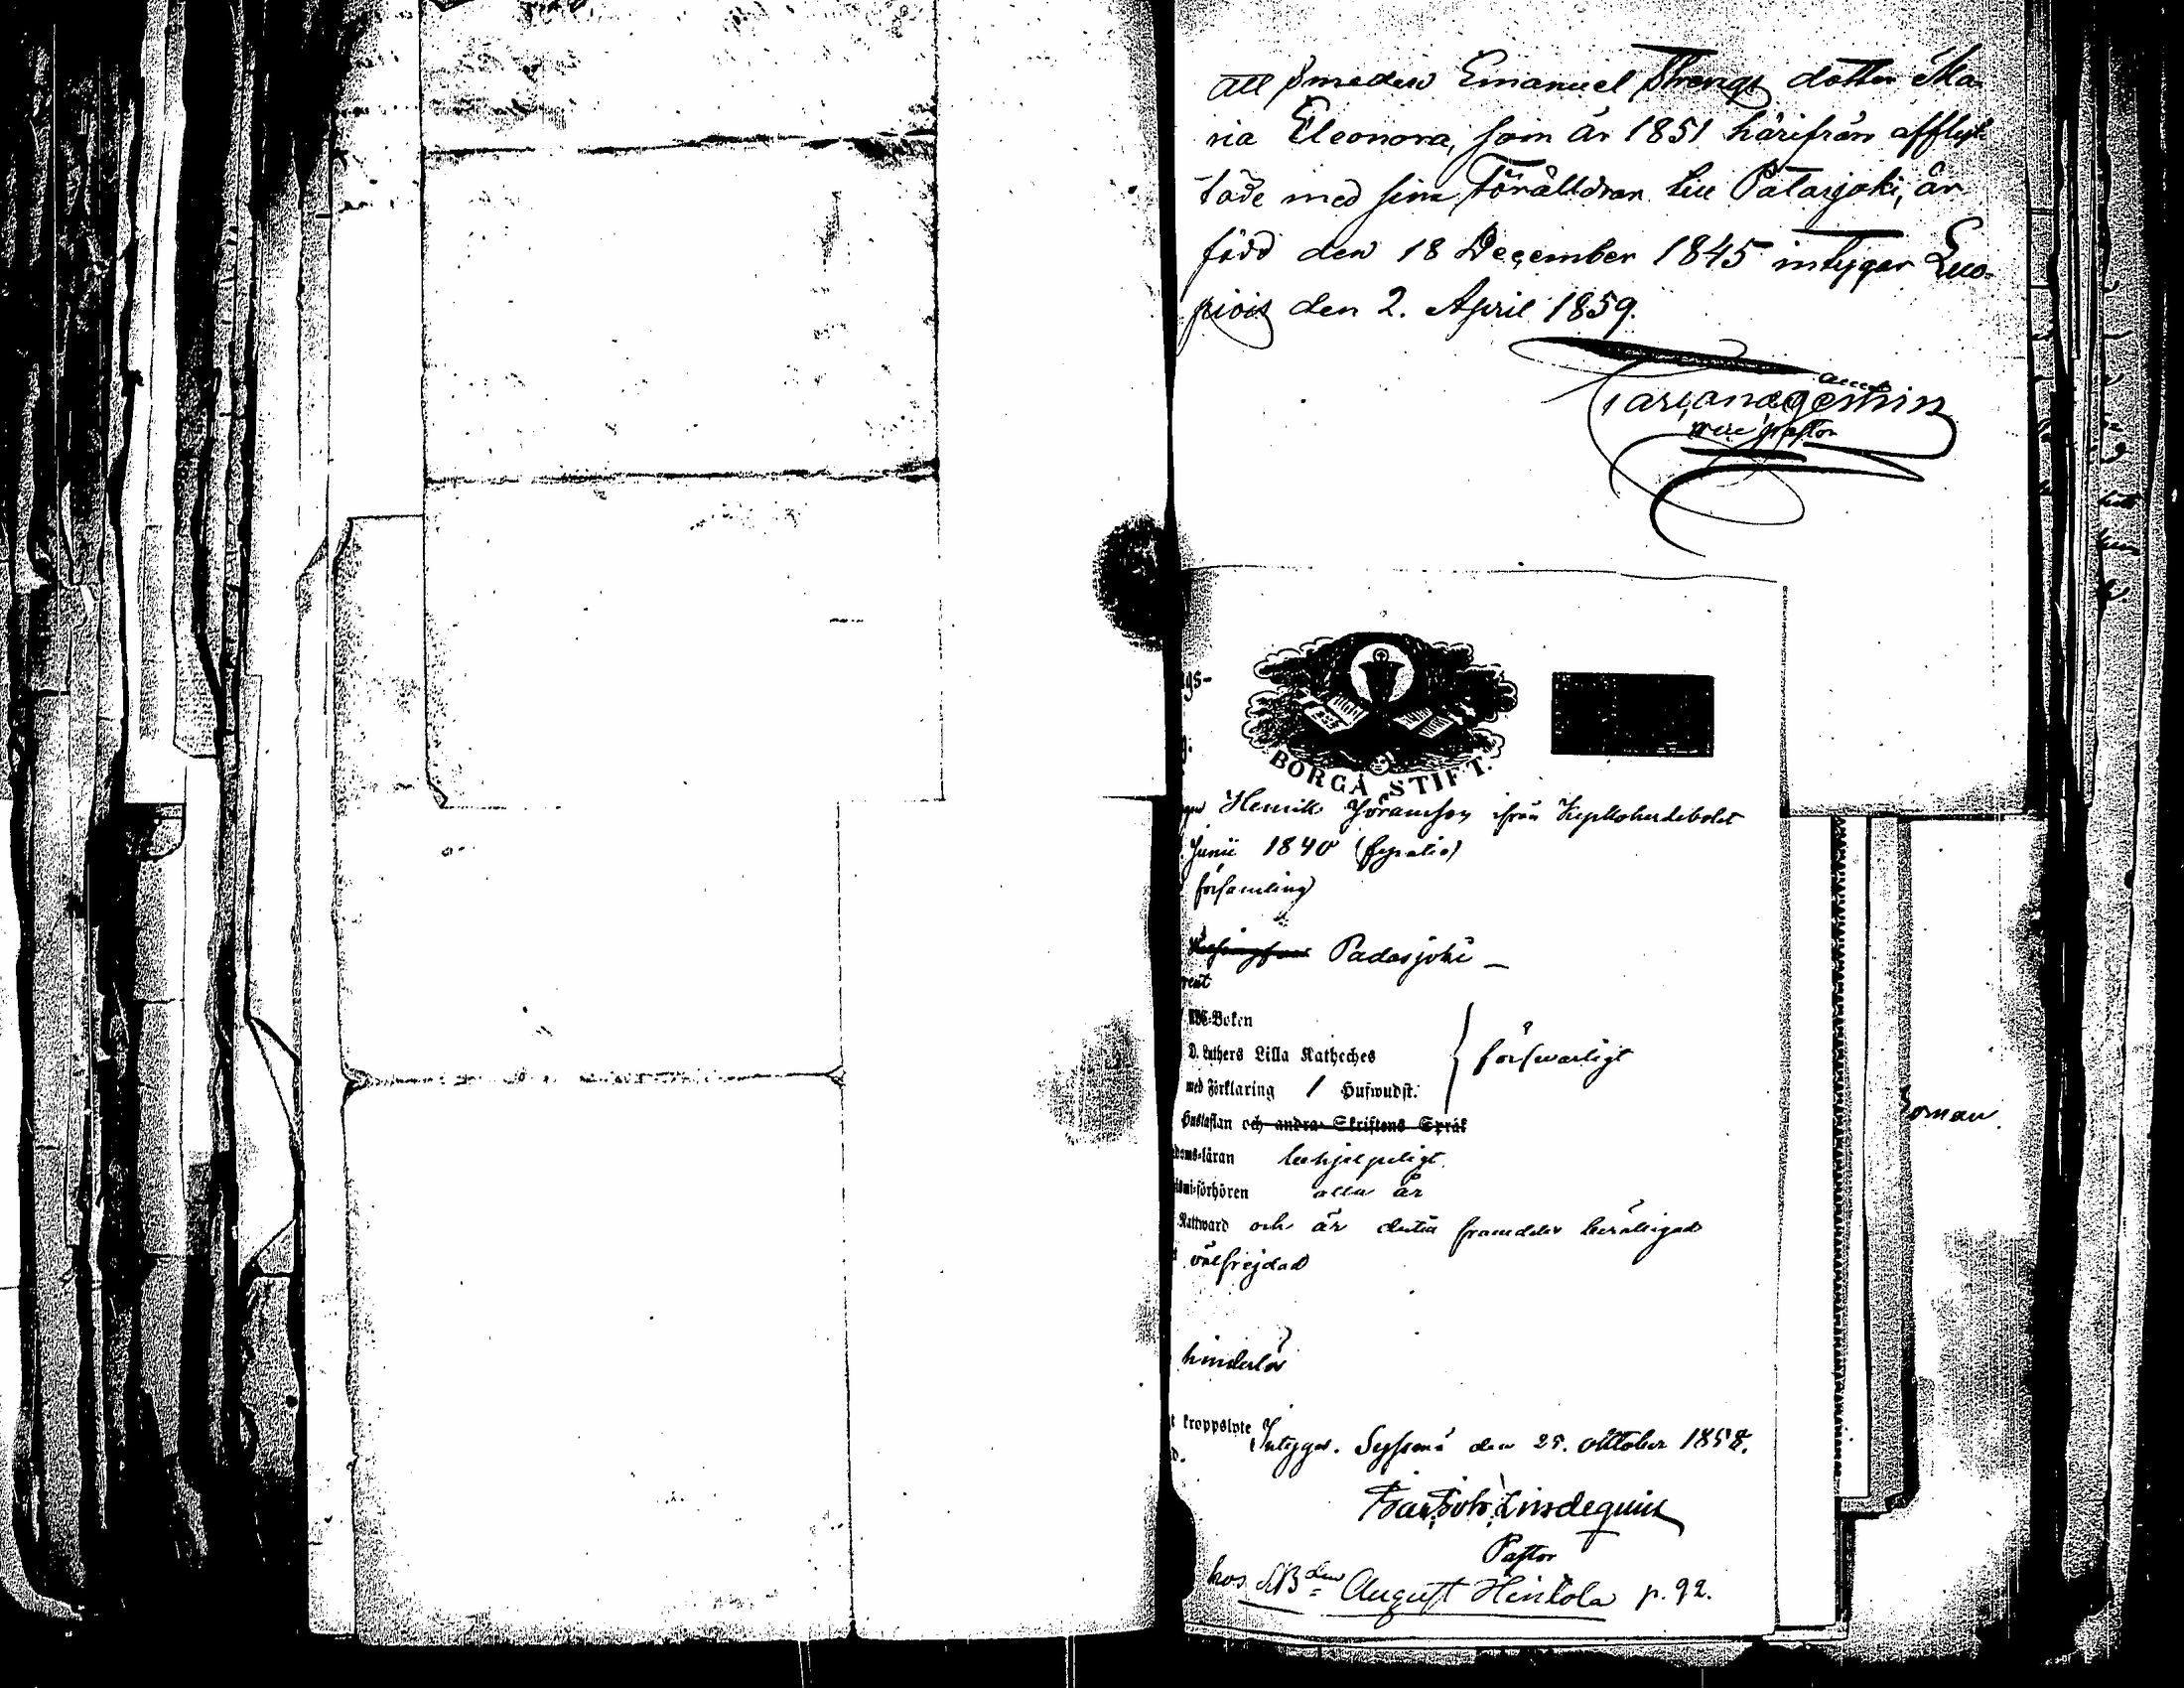 Att Smeden Emanuel Strengs dotter Ma-
ria Eleonora, som år 1851 härifrån afflyt-
tade med sina Föräldrar till Patasjoki, är
född den 18 December 1845 intygar Luo-
piois den 2. April 1859.
vice pastor
gs-
BORGÅ STIFT.
Henrik Göransson ifrån
Junii 1840 (fyratio)
församling
Padasjoki
ABC-Boken
D. Luthers Lilla Katheches
med Förklaring 1 Hufwudst.
försvarligt
Hustaflan och andra Skriftens Språk
doms-läran behjelpeligt
ismi-förhören alla år
Nattward och är dertill framdeles berättigad
välfrejdad
hinderlös
t kroppslyte Intygas. Sysmä den 25. oktober 1858.
Lindequist
Pastor
hos August Heikola p. 92.